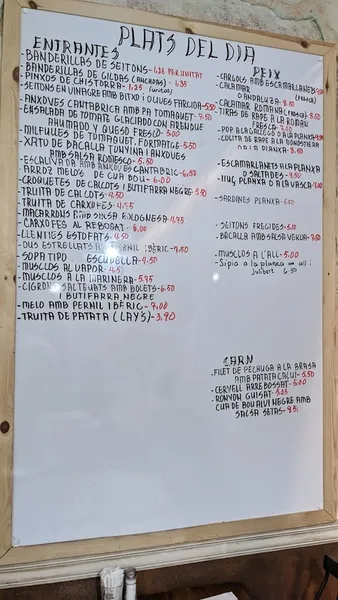 PLATS DEL DIA
ENTRANTES
-BANDERILLAS DE SEITONS-1.25 PER UNITAT
-BANDERILLAS DE GILDAS (ANCHOAS)-
-PINXOS DE CHISTORRA-1.25 (unitat)
-SEITONS EN VINAGRE AMB BITXO I OLIVES FARCIDA-5.50
-ANXOVES CANTABRICA AMB PA TOMAQUET-7.50
-ENSALADA DE TOMATE GLACIADO CON ARENQUE
AHUMADO Y QUESO FRESCO-5.00
-MILFULLES DE TOMAQUET, FORMATGE-5.50
-XATO DE BACALLA TONYINA I ANXOVES
AMB SALSA ROMESCO-5.50
-ESCALIVADA AMB ANXOVES CANTABRIC-6.50
-ARROZ MELOS DE CUA BOU-6.00
-CROQUETES DE CALCOTS I BUTIFARRA NEGRE-5.50
-TRUITA DE CALCOTS-4.50
-TRUITA DE CARXOFES-4.75
-MACARRONS SALSA BOLOGNESA-4.75
-CARXOFES AL REBOSAT-6.00
-LLENTIES ESTOFATS-4.50
-OUS ESTRELLATS PERNIL IBERIC-7.50
-SOPA TIPO ESCUDELLA-4.50
-MUSCLOS AL VAPOR-4.5
-MUSCLOS A LA MARINERA-5.75
-CIGRONS SALTEJATS AMB BOLETS-6.50
I BUTIFARRA NEGRE
-MELO AMB PERNIL IBERIC-7.00
-TRUITA DE PATATA (LAYS)-3.90
PEIX
-CARGOLS AMB ESCAMARLANETS
-CALAMAR
ANDALUZA-8.50 (FRESCA)
-CALAMAR ROMANA-8.50 (FRESCA)
-TIRAS DE RAPE A LA ROMAN
FRESCA-
-POP A LA GALLEGO O A LA PLANXA-
-COLITA DE RAPE A LA DONOSTIERA
O A LA DIANXA-9.50
-ESCAMARLLANETS A LA PLANXA
O SALTADES-
-LLUÇ PLANXA O A LA VASCA-7.00
-SARDINES PLANXA-
-SEITONS FREGIDES-
-BACALLA AMB SALSA VERDA-7.50
-MUSCLOS A L'ALL-5.00
-Sipia a la planxa amb all i
Julivert 6.50
CARN
-FILET DE PECHUGA A LA BRASA
AMB PATATA CALIU-5.50
-CERVELL ARREBOSSAT-6.00
-RONYON GUISAT-
CUA DE BOU AL VI NEGRE AMB
SALSA SETAS-